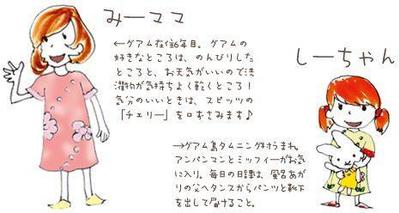 みーママ
←グアム在住6年目。グアムの
好きなところは、のんびりした
ところと、お天気がいいので洗
濯物が気持ちよく乾くところ!
気分のいいときは、スピッツの
「チェリー」を口ずさみます♪
しーちゃん
→グアム島タムニング村うまれ。
アンパンマンとミッフィーがお気
に入り。毎日の日課は、風呂あが
りの父へタンスからパンツと靴下
を出して届けること。